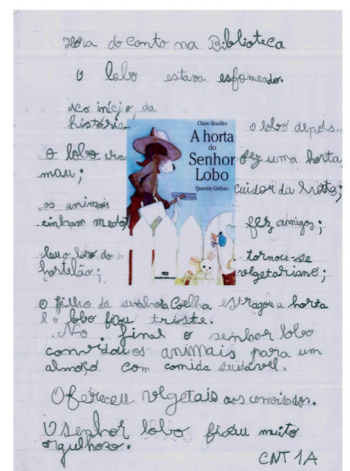 Hora do conto na Biblioteca
O lobo estava esfomeado.
No início, da
história...
o lobo depois...
o lobo era
mau;
os animais
tinham medo
hortelão;
Claire Bouiller
A horta
do
Senhor
Lobo
Quentin Gréban
fez uma horta
cuidou da horta;
fez amigos;
tornou-se
vegetariano;
O filho da senhora Coelha estragou a horta
e o lobo ficou triste.
No final o senhor lobo
convidou os animais para um
almoço com comida saudável.
Ofereceu vegetais aos convidados.
O senhor lobo ficou muito
orgulhoso.
CNT 1A